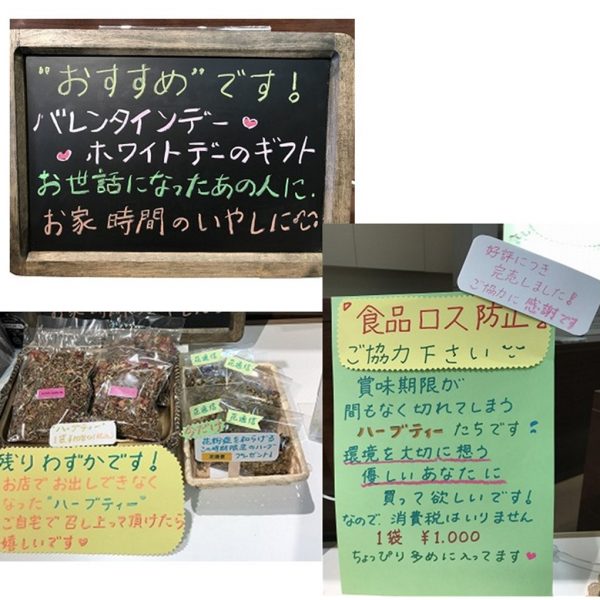 "おすすめ"です!
バレンタインデー
ホワイトデーのギフト
お世話になったあの人に.
お家時間のいやしに
好評につき
完売しました!
ご協力に感謝です
"食品ロス防止"
ご協力下さい
賞味期限が
間もなく切れてしまう
ハーブティーたちです
環境を大切に想う
優しいあなたに
買って欲しいです!
なので、消費税はいりません
1袋 ¥1.000
ちょっぴり多めに入ってます
ハーブティー
花通信
花通信
花通信
花通信
今だけ
花粉症を和らげる
この時期限定のハーブ
プレゼント!
残りわずかです!
お店でお出しできなく
なった"ハーブティー"
ご自宅で召し上って頂けたら
嬉しいです